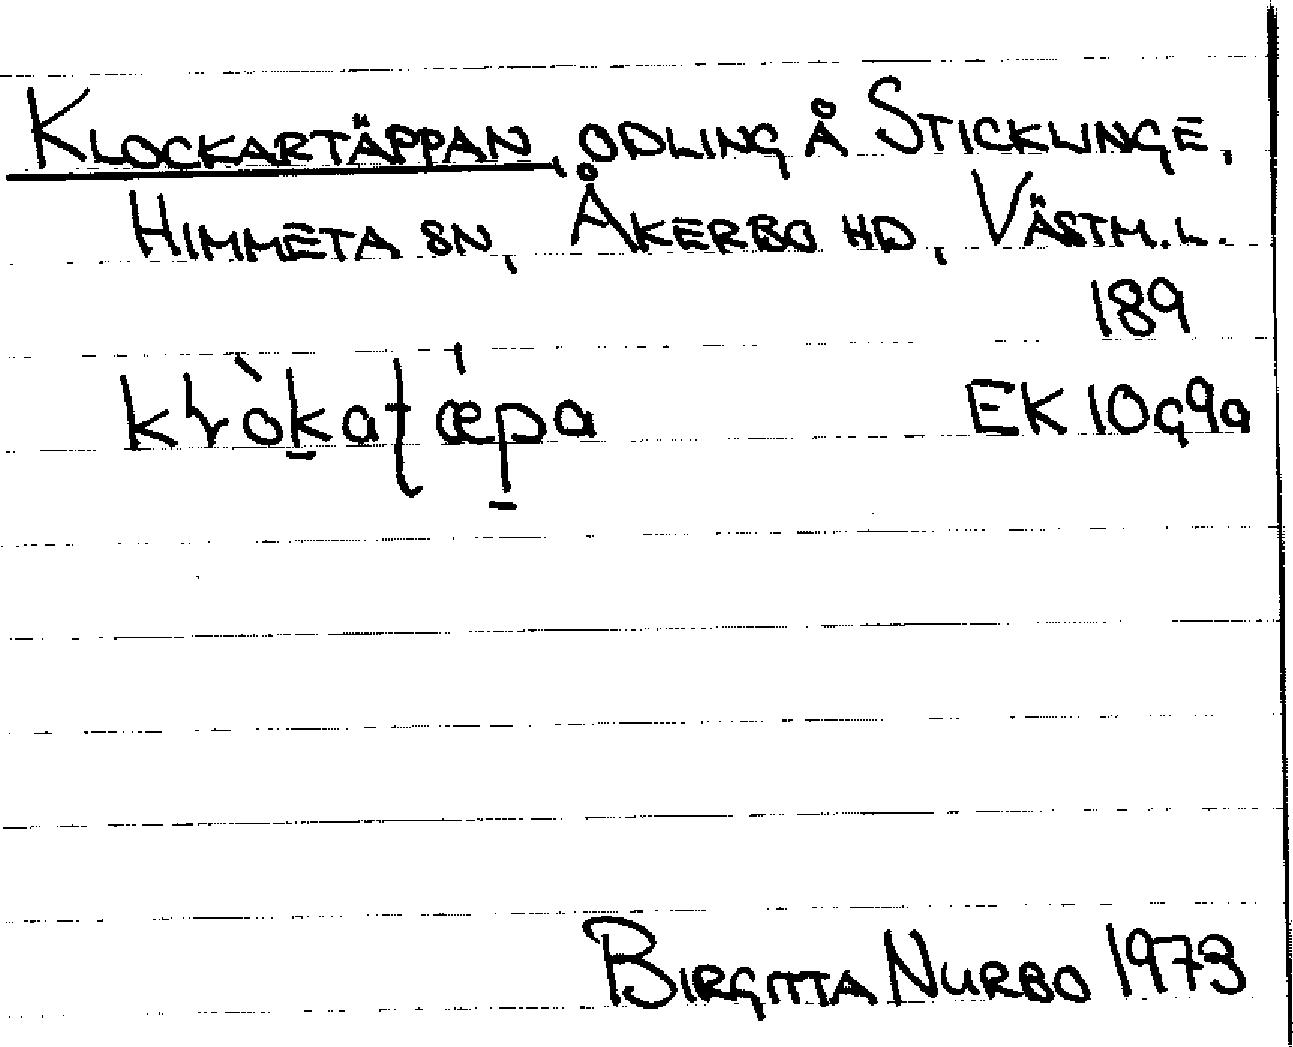 KLOCKARTÄPPAN, ODLING Å STICKLINGE,
HIMMETA SN, ÅKERBO HD, VÄSTM. L.
189
EK 10G9a
BIRGITTA NURBO 1973